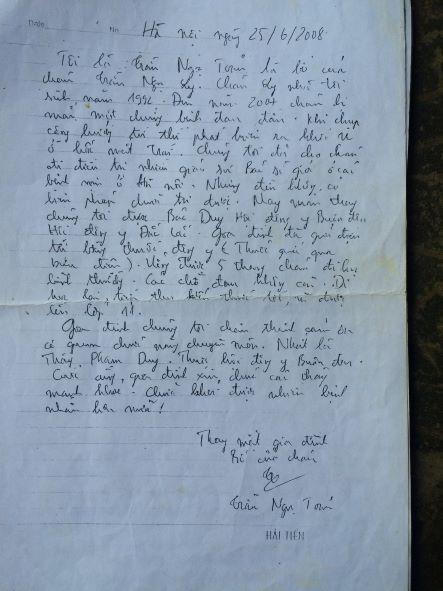 Hà nội ngày 25/6/2008
Tôi là Trần Ngọc Toán là bố của
cháu Trần Ngọc Cháu nhà tôi
sinh năm 1992. Đến năm 2007 cháu bị
một chứng bệnh đau đầu. Khi chụp
cộng hưởng từ thì phát hiện ra khối u
ở hốc mắt trái. Chúng tôi đã cho cháu
đi điều trị nhiều giáo sư bác sĩ giỏi ở các
bệnh viện ở Hà nội. Nhưng đều không có
biện pháp chữa trị được. May mắn thay
chúng tôi được Bác Duy Hội đông y Buôn đôn
Hội đông y Đắc Lắc. Gia đình đã qua điều
trị bằng thuốc đông y (Thuốc gửi qua
bưu điện). Uống được 5 tháng cháu đi học
bình thường. Các chỗ đau không còn. Đi
lên lớp 11.
Gia đình chúng tôi chân thành cảm ơn
cơ quan chuyên môn. Nhất là
Thầy Phạm Duy. Thuộc hội đông y Buôn đôn.
Cuối cùng, gia đình xin chúc các thầy
mạnh khỏe. Chữa khỏi được nhiều bệnh
nhân hơn nữa!
Thay mặt gia đình
Bố của cháu
Trần Ngọc Toán
HẢI TIẾN